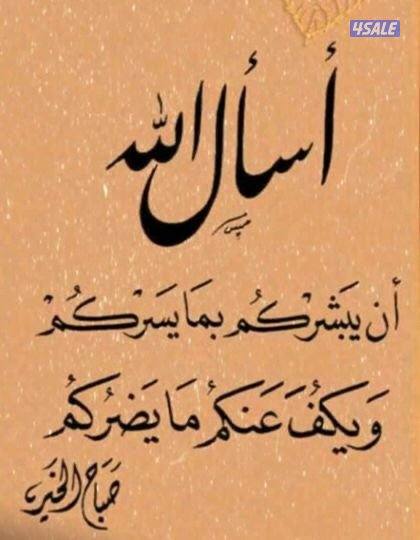 4SALE
أسأل الله
أن يَبَشِّرْكُمْ بِمَا يَسَرْكُمْ
وَيَكُفَ عَنكُمُ مَا يَضُرُكُمُ
صَبَاحُ الخَير